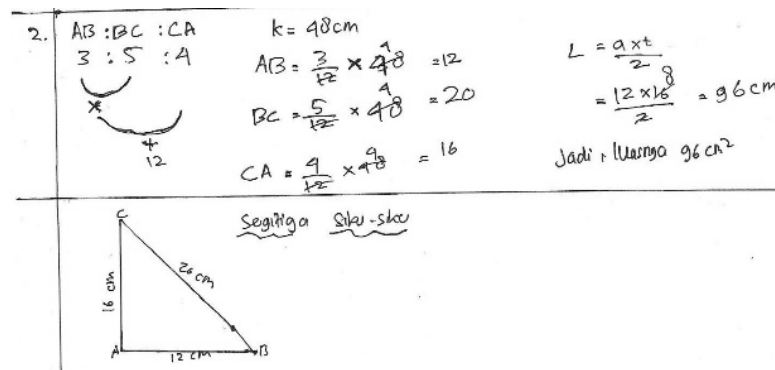 2. AB : BC : CA
3 : 5 : 4
+
12
k = 48 cm
AB = 3/12 × 48 4 = 12
BC = 5/12 × 48 4 = 20
CA = 4/12 × 48 4 = 16
L = a x t / 2
= 12 × 16 8 / 2 = 96 cm
Jadi, luasnya 96 cm²
Segitiga siku-siku
C
16 cm
20 cm
A
12 cm
B